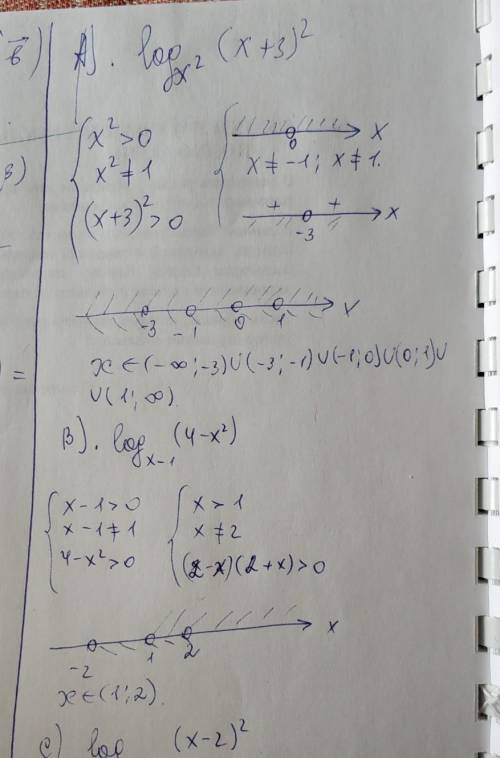 б)
A). log_{x²} (x+3)²
{ x² > 0
x² ≠ 1
(x+3)² > 0
{ 0 x
x ≠ -1; x ≠ 1.
+ + -3 x
3)
-3 -1 0 1 x
=
x ∈ (-∞; -3) ∪ (-3; -1) ∪ (-1; 0) ∪ (0; 1) ∪
∪ (1; ∞).
B). log_{x-1} (4-x²)
{ x-1 > 0
x-1 ≠ 1
4-x² > 0
{ x > 1
x ≠ 2
(2-x)(2+x) > 0
-2 1 2 x
x ∈ (1; 2).
C) log (x-2)²